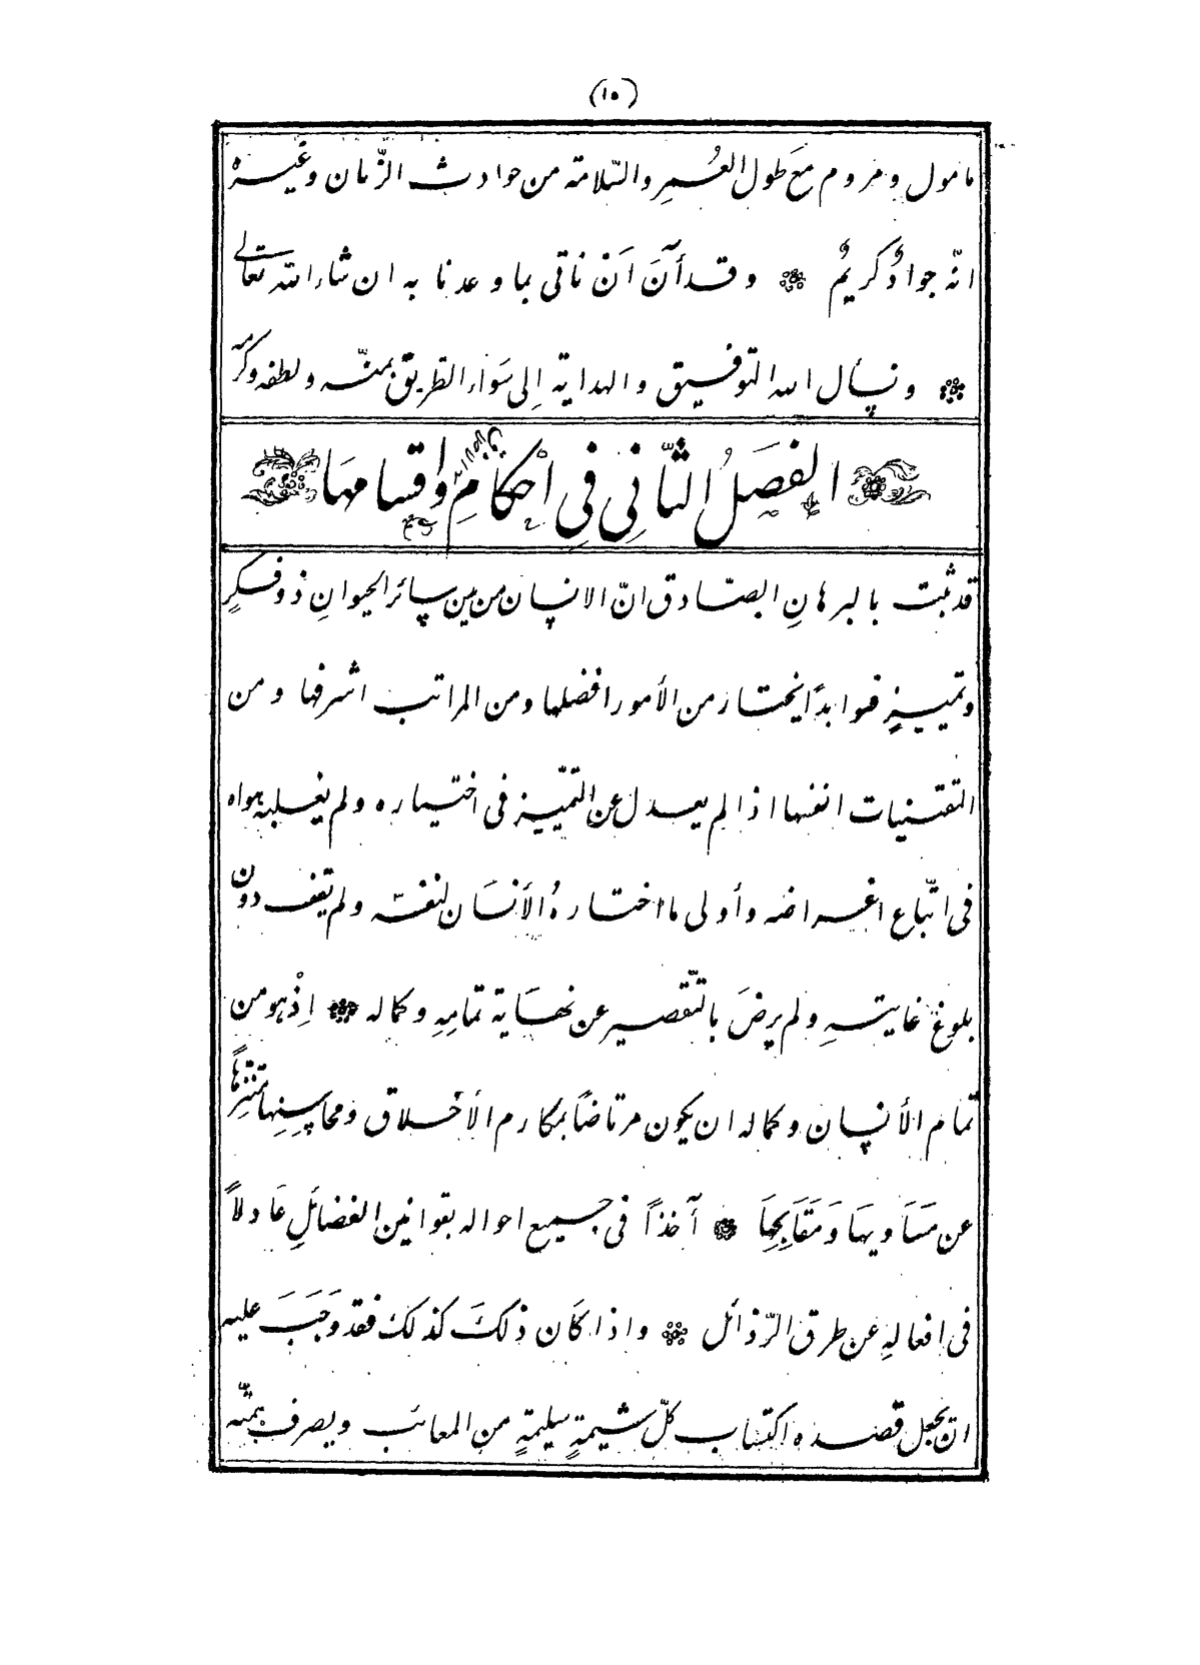 (١٠)
مامول ومروم مَع طول العُمرِ والسّلامة من حوادث الزّمان وغيره
انّه جوادٌ كريمٌ وقد أنَ اَنْ ناتى بما وعدنا به ان شاء الله تعالى
ونسأل الله التوفيق والهداية إلى سَواء الطّريق بمنّه ولطفه وكرمه
الفصَلُ الثّانِى فِى اَحْكامِ الاخلاق واقسامهَا
قد ثبت بالبرهانِ الصّادق انّ الانسان من بين سائر الحيوانِ ذو فكرٍ
وتمييزٍ فهو ابدًا يختار من الأمور افضلها ومن المراتب اشرفها ومن
المقتنيات انفسها اذا لم يعدل عن التمّييز فى اختياره ولم يغلبه هواه
فى اتّباع اغراضه وأولى ما اختارهُ الأنسَان لنفسه ولم يقف دون
بلوغ غايتهِ ولم يرضَ بالتّقصير عن نهايَة تمامِهِ وكماله اِذْ هو من
تمام الأنسان وكماله ان يكون مرتاضًا بمكارم الأخلاق ومحاسِنِها متنزِّهًا
عن مسَاويهَا وَمَقَابِحِهَا آخذاً فى جميع احواله بقوانين الفضائلِ عَادلاً
فى افعالهِ عن طرق الرّذائل واذا كَان ذلكَ كذلك فقد وَجَبَ عليه
ان يجعل قصده اكتساب كلّ شيمةٍ سليمةٍ من المعائب ويصرف همّته